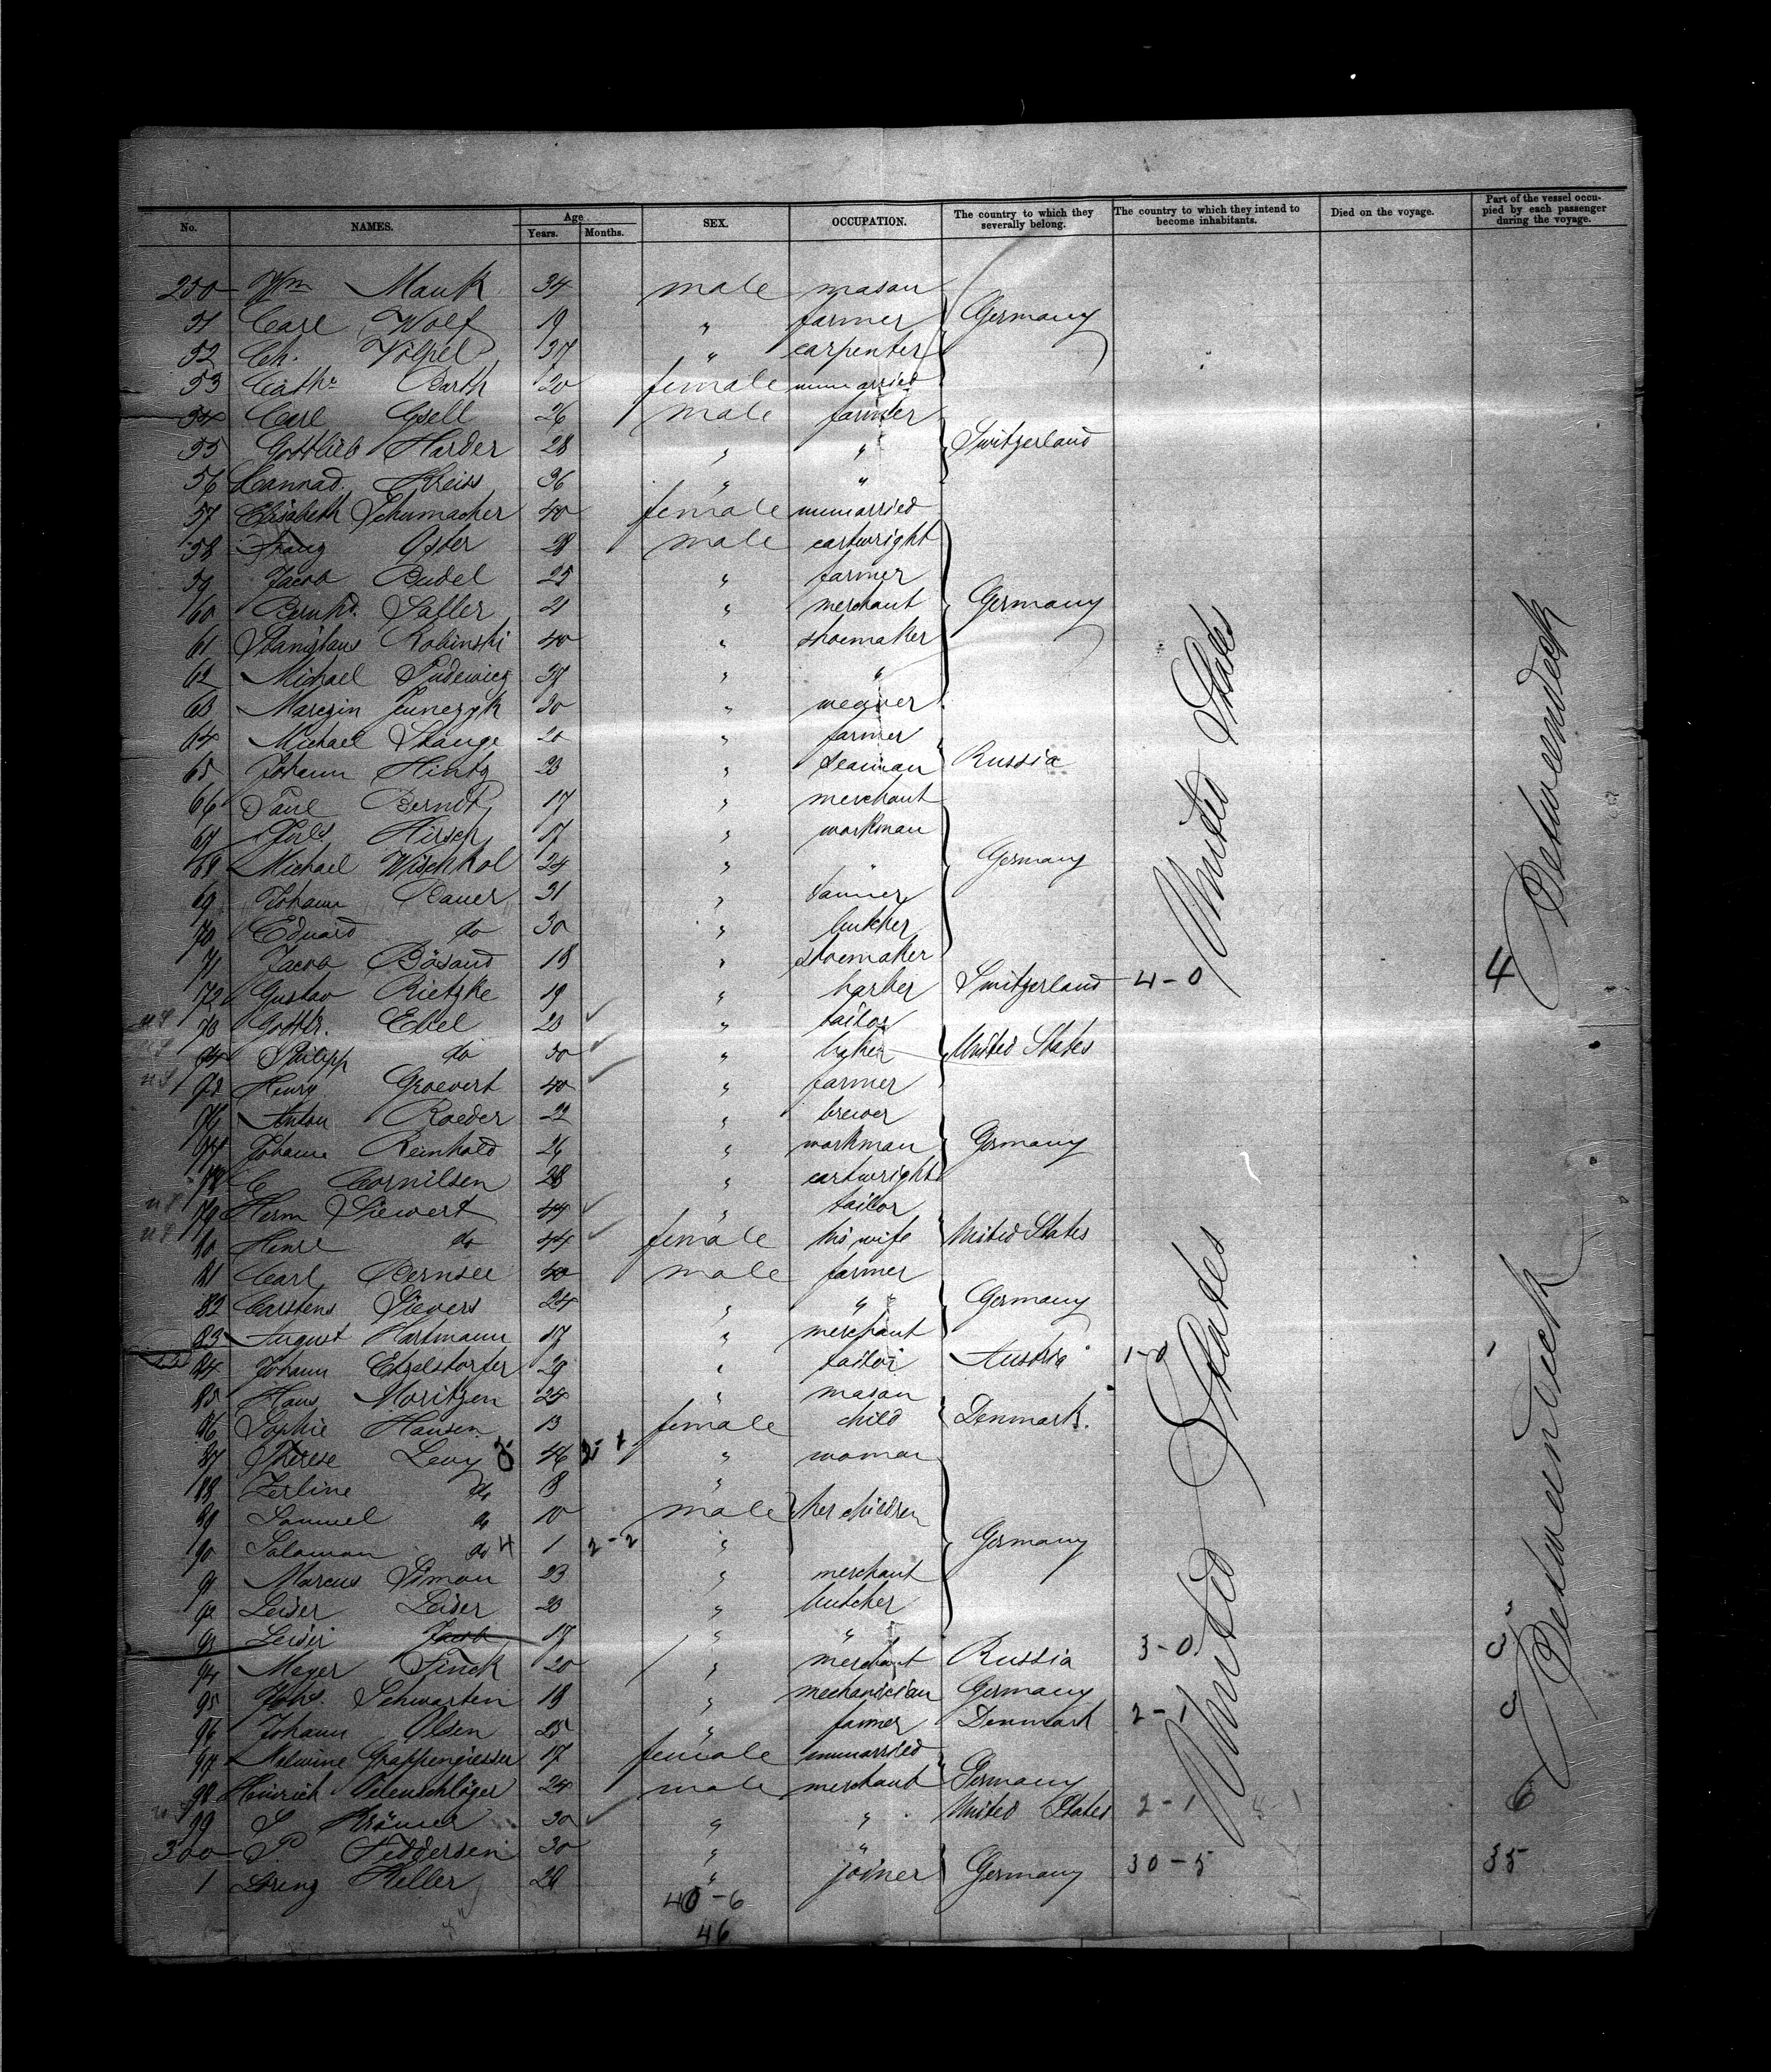 No. NAMES. Age Years. Months. SEX. OCCUPATION. The country to which they severally belong. The country to which they intend to become inhabitants. Died on the voyage. Part of the vessel occupied by each passenger during the voyage.
250 Wm Mauk 34 male mason
51 Carl Wolf 19 " farmer Germany
52 Ch. Völpel 37 " carpenter
53 Cathe Barth 20 female unmarried
54 Carl Gsell 26 male farmer
55 Gottlieb Harder 28 " " Switzerland
56 Connrad. Kreiss 36 " "
57 Elisabeth Schumacher 40 female unmarried
58 Franz Oster 28 male cartwright
59 Jacob Budel 25 " farmer
60 Bernhd. Saller 21 " merchant Germany
61 Robinski 40 " shoemaker
62 Michael 37 " "
63 30 " weaver
64 Michael Stange 20 " farmer
65 Johann Hintz 23 " seaman Russia
66 Paul Berndt 17 " merchant
67 Hirsch 17 " workman
68 Michael Wischhol 24 " " Germany
69 Johann Bauer 31 "
70 Eduard do 30 " butcher
71 Jacob Bösand 18 " shoemaker
72 Gustav Rietzke 19 " barber Switzerland 4-0 4
73 Gottlr. Ebel 23 " tailor
74 Philipp do 30 " United States
75 Henry Groevert 40 " farmer
76 Anton Roeder 22 " brewer
77 Johann Reinhold 26 " workman Germany
78 C Cornilsen 28 " cartwright
79 Herm Siewert 44 " tailor
80 Henre do 44 female his wife United States
81 Carl Bernsee 40 male farmer
82 Carstens Sievers 24 " " Germany
83 August Hartmann 17 " merchant
84 Johann Etzelstorfer 29 " tailor Austria 1-0 1
85 Hans Moritzen 24 " mason
86 Sophie Hansen 13 female child Denmark.
87 Therese Levy 46 " woman
88 Zerline do 8 "
89 Samuel do 10 male her children
90 Salomon do 4 1 2-2 " Germany
91 Marcus Simon 23 " merchant
92 Leiser Leiser 20 " butcher
93 Leiser Jacob 17 " "
94 Meyer Finck 20 " merchant Russia 3-0 3
95 Johs. Schwarten 18 " mechanician Germany
96 Johann Olsen 25 " farmer Denmark 2-1 3
97 Malwine Grappengiesser 17 female unmarried
98 Heinrich Oelenschläger 24 male merchant Germany
99 S Krämer 30 " " United States 2-1 6
300 P Feddersen 30 " "
1 Lorenz Keller 28 " joiner Germany 30-5 35
40-6
46
United States
Betweendeck
United States
Betweendeck